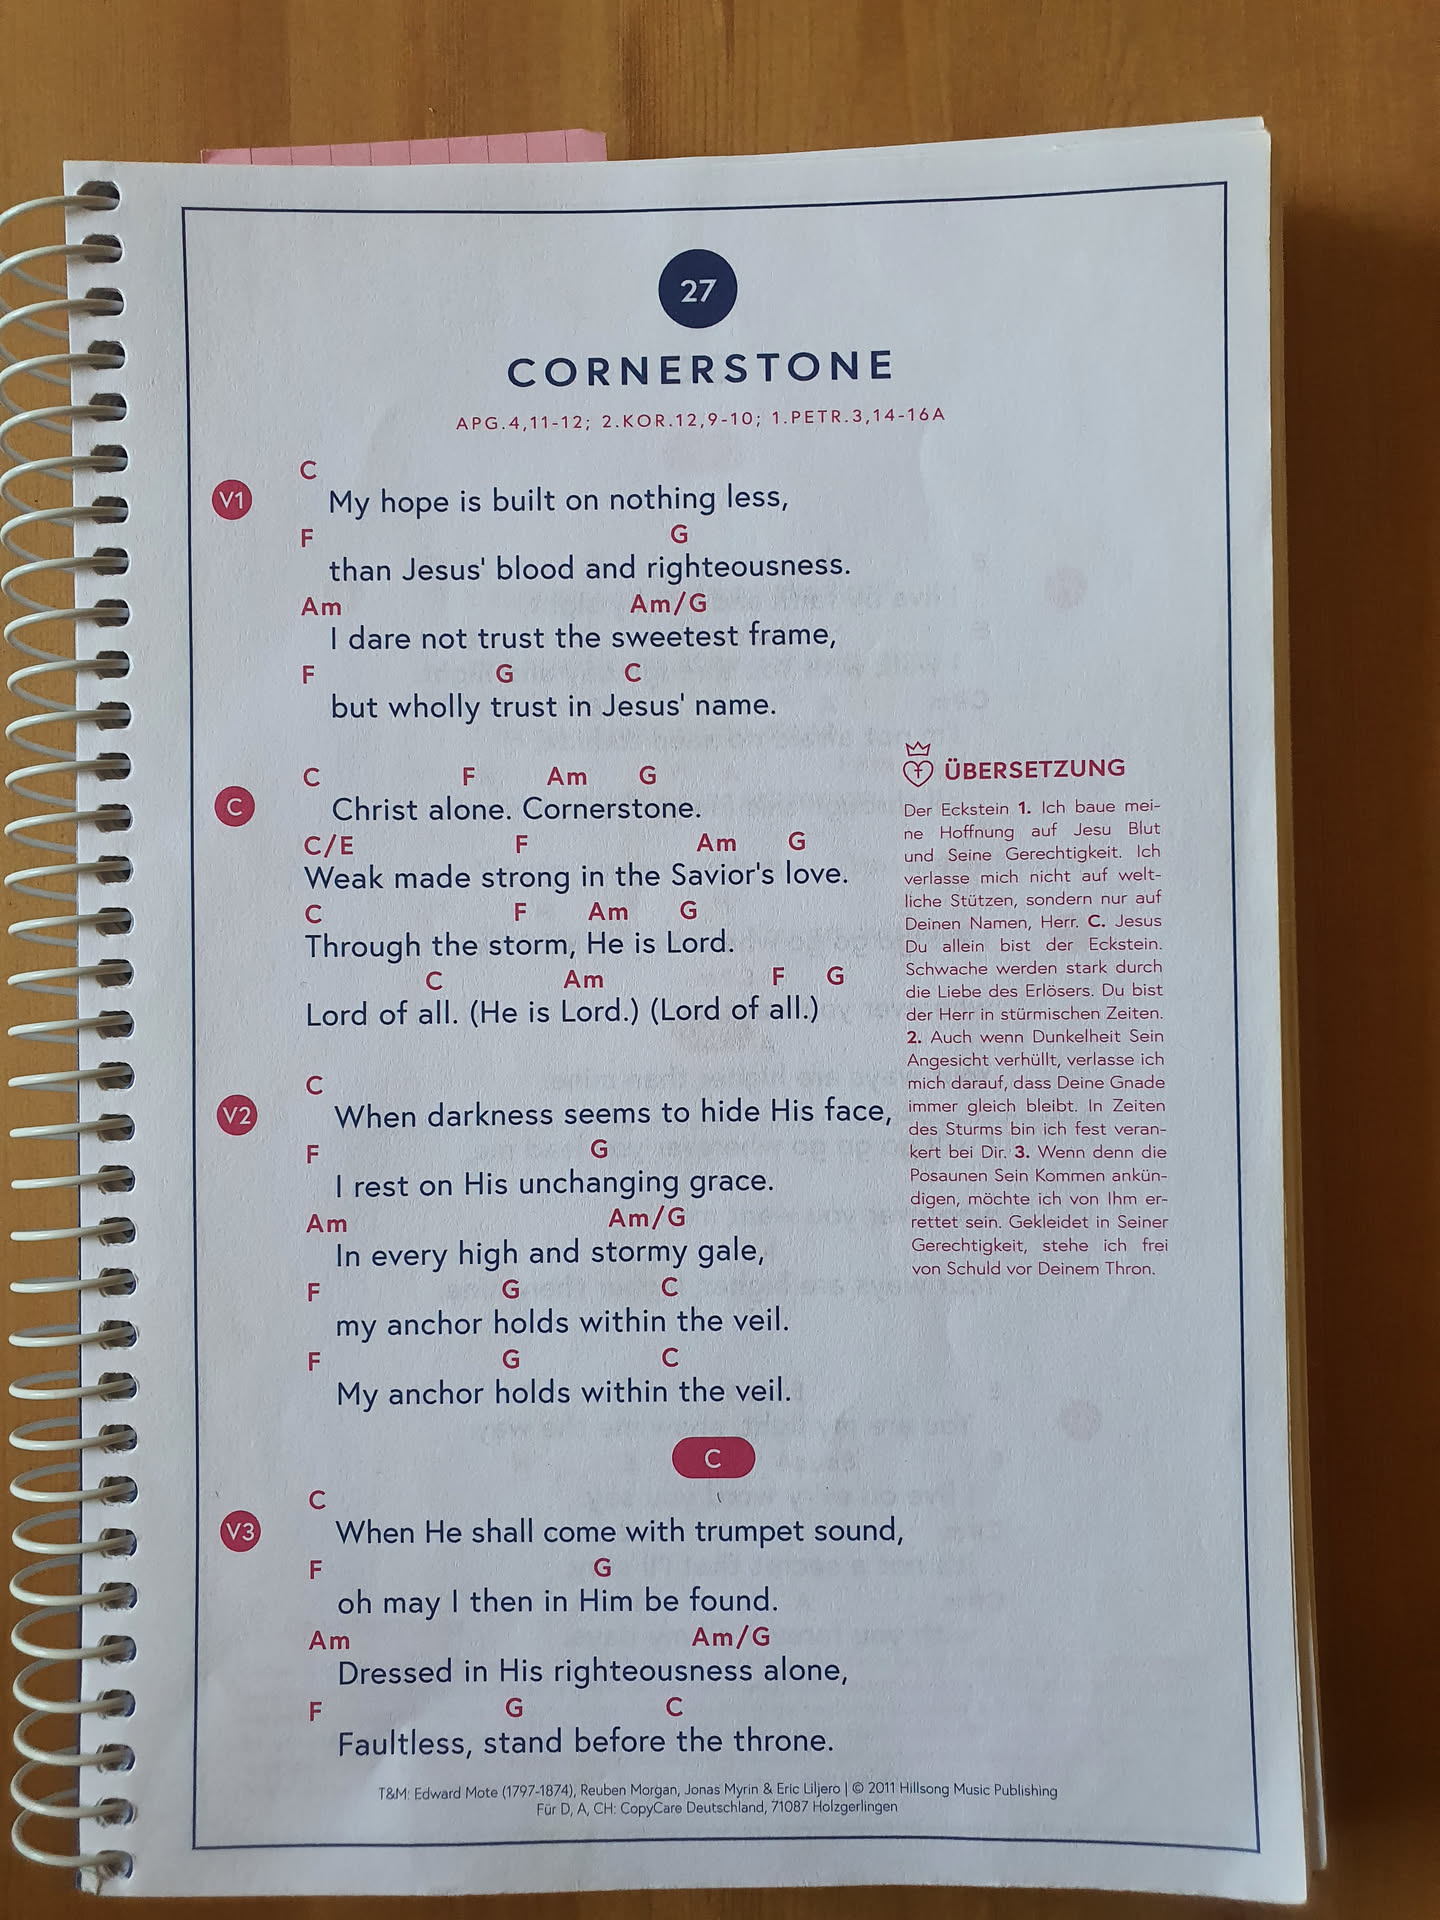 27
CORNERSTONE
APG.4,11-12; 2.KOR.12,9-10; 1.PETR.3,14-16A
C
V1 My hope is built on nothing less,
F G
than Jesus' blood and righteousness.
Am Am/G
I dare not trust the sweetest frame,
F G C
but wholly trust in Jesus' name.
C F Am G
C Christ alone. Cornerstone.
C/E F Am G
Weak made strong in the Savior's love.
C F Am G
Through the storm, He is Lord.
C Am F G
Lord of all. (He is Lord.) (Lord of all.)
C
V2 When darkness seems to hide His face,
F G
I rest on His unchanging grace.
Am Am/G
In every high and stormy gale,
F G C
my anchor holds within the veil.
F G C
My anchor holds within the veil.
C
C
V3 When He shall come with trumpet sound,
F G
oh may I then in Him be found.
Am Am/G
Dressed in His righteousness alone,
F G C
Faultless, stand before the throne.
ÜBERSETZUNG
Der Eckstein 1. Ich baue mei-
ne Hoffnung auf Jesu Blut
und Seine Gerechtigkeit. Ich
verlasse mich nicht auf welt-
liche Stützen, sondern nur auf
Deinen Namen, Herr. C. Jesus
Du allein bist der Eckstein.
Schwache werden stark durch
die Liebe des Erlösers. Du bist
der Herr in stürmischen Zeiten.
2. Auch wenn Dunkelheit Sein
Angesicht verhüllt, verlasse ich
mich darauf, dass Deine Gnade
immer gleich bleibt. In Zeiten
des Sturms bin ich fest veran-
kert bei Dir. 3. Wenn denn die
Posaunen Sein Kommen ankün-
digen, möchte ich von Ihm er-
rettet sein. Gekleidet in Seiner
Gerechtigkeit, stehe ich frei
von Schuld vor Deinem Thron.
T&M: Edward Mote (1797-1874), Reuben Morgan, Jonas Myrin & Eric Liljero | © 2011 Hillsong Music Publishing
Für D, A, CH: CopyCare Deutschland, 71087 Holzgerlingen